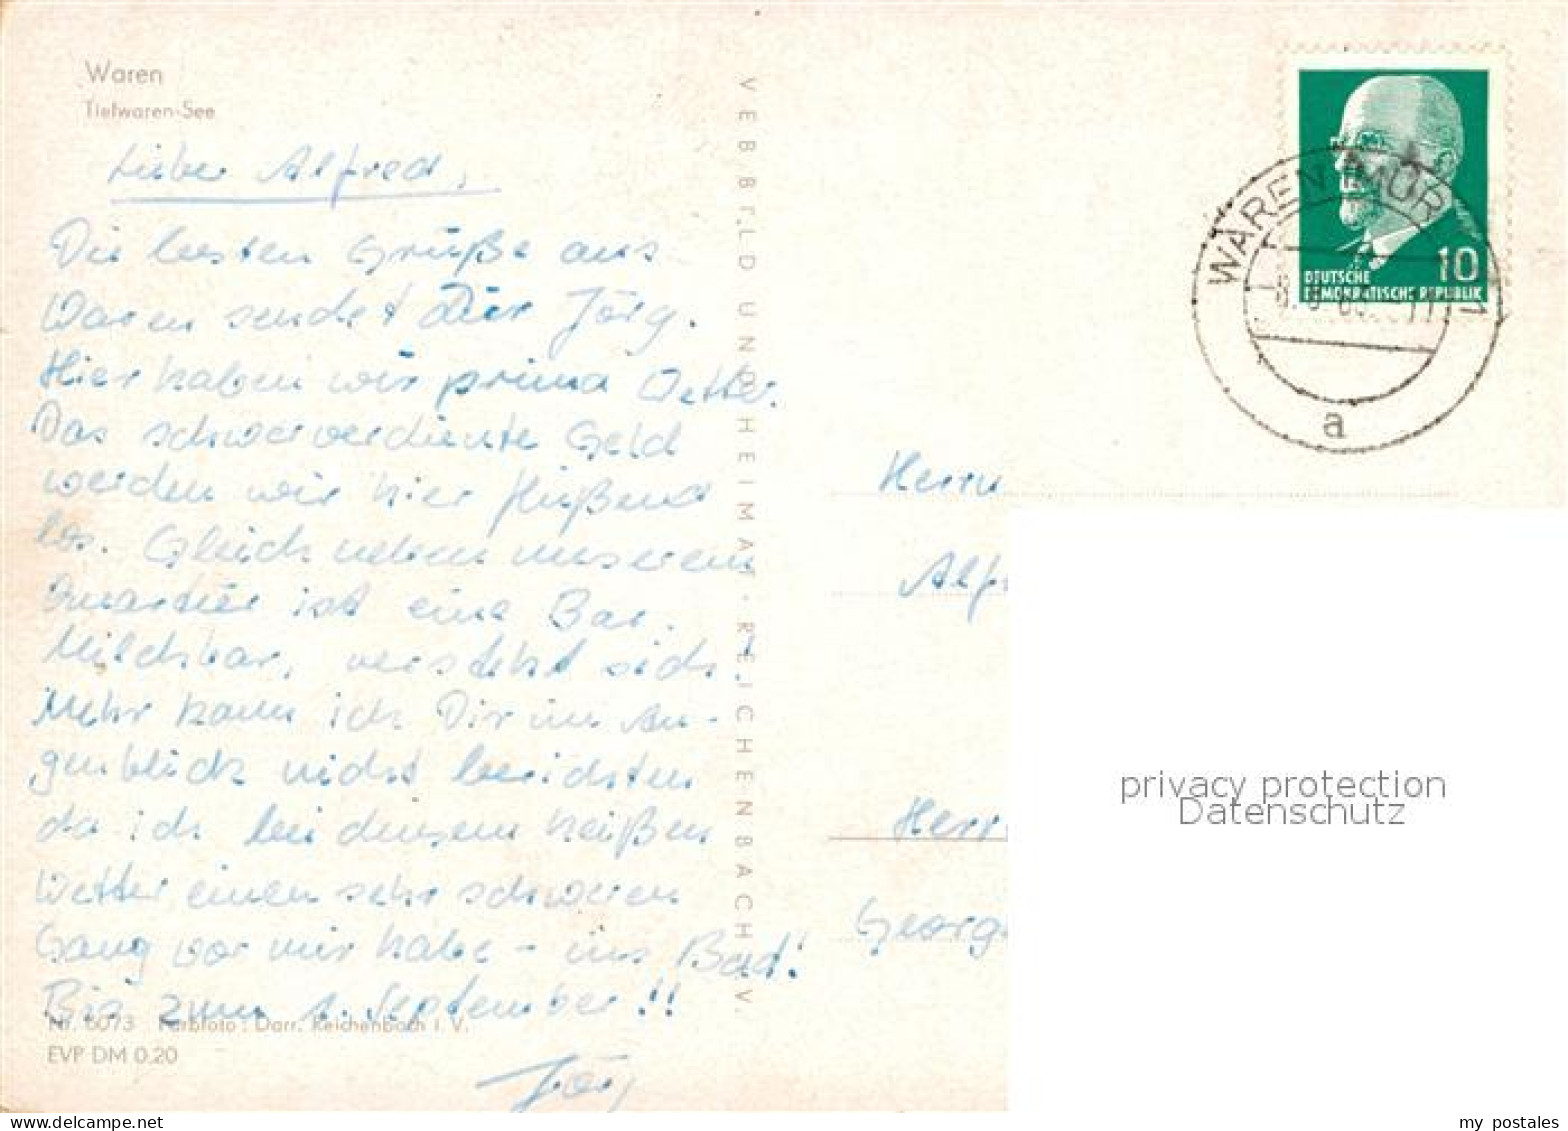 Waren
Tiefwaren-See
Lieber Alfred,
Die besten Grüße aus
Waren sendet Dir Jörg.
Hier haben wir prima Wetter.
Das schwerverdiente Geld
werden wir hier fließend
los. Gleich neben unserem
Quartier ist eine Bar.
Milchbar, versteht sich!
Mehr kann ich Dir im Au-
genblick nicht berichten
da ich bei diesem heißen
Wetter einen sehr schweren
Gang vor mir habe - ins Bad!
Bis zum 1. September!!
Jörg
Nr. 6073 Farbfoto: Darr, Reichenbach i. V.
EVP DM 0.20
VEB BILD UND HEIMAT · REICHENBACH I. V.
10
DEUTSCHE
DEMOKRATISCHE REPUBLIK
WAREN (MÜR 1
a
Herrn
Alf
Herr
Georg
privacy protection
Datenschutz
my postales